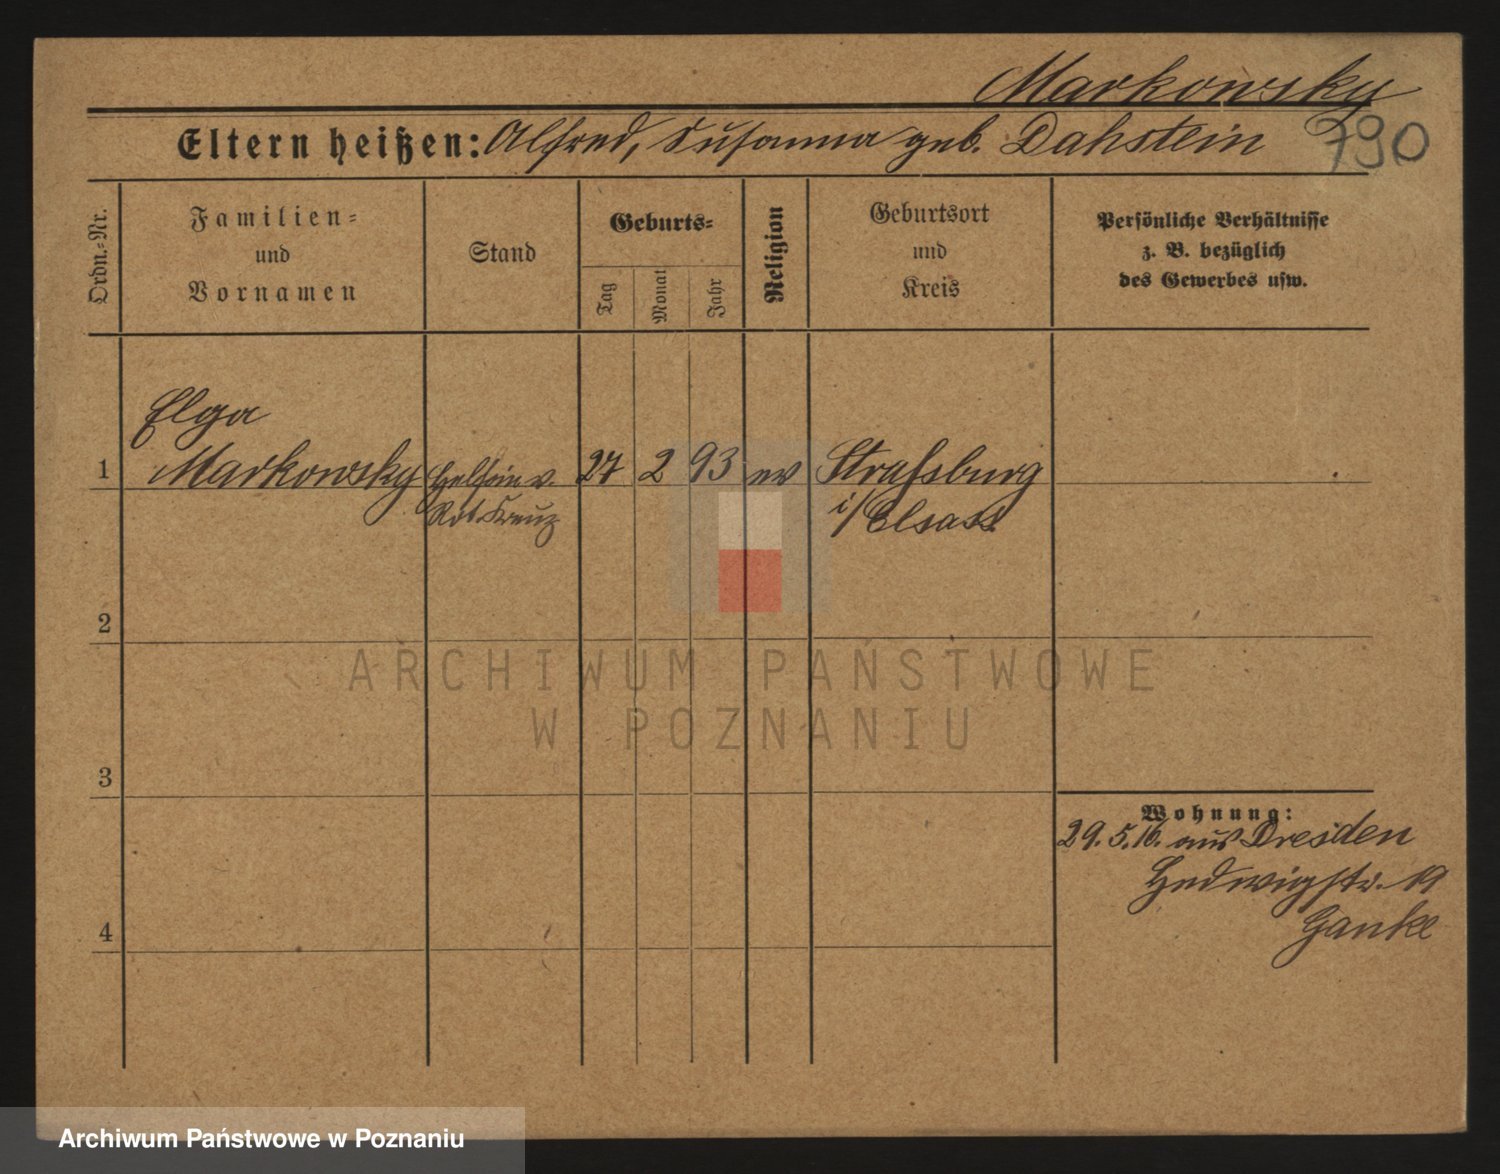 Markowsky
Eltern heißen: Alfred, Susanna geb. Dahstein 790
Ordn.=Nr.
Familien=
und
Vornamen
Stand
Geburts=
Tag
Monat
Jahr
Religion
Geburtsort
und
Kreis
Persönliche Verhältnisse
z. B. bezüglich
des Gewerbes usw.
Elga
1 Markowsky Helferin v. 27 2 93 ev Strassburg
Rot. Kreuz i/Elsass.
2
3
4
Wohnung:
29.5.16. aus Dresden
Hedwigstr. 19
Ganke
ARCHIWUM PAŃSTWOWE
W POZNANIU
Archiwum Państwowe w Poznaniu